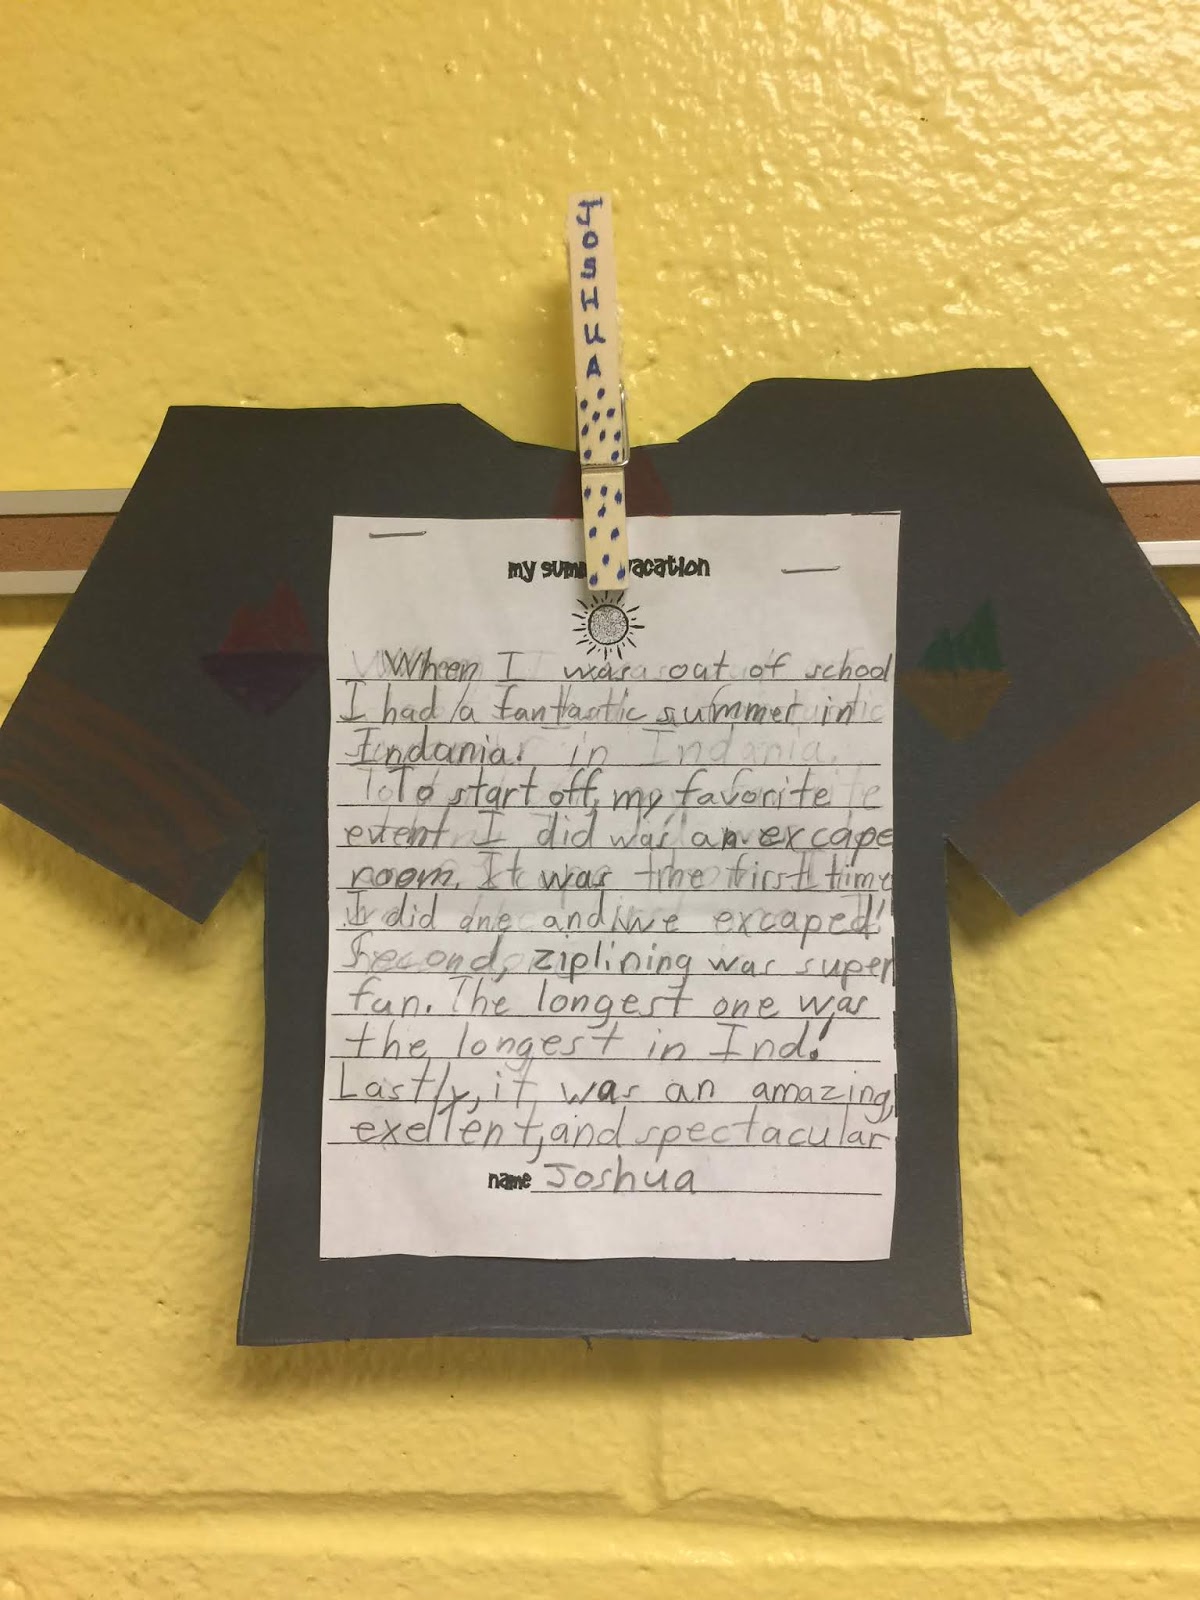 JOSHUA
my summer vacation
When I was out of school
I had a fantastic summer in
Indania.
To start off, my favorite
event I did was an excape
room. It was the first time
I did one and we excaped!
Second, ziplining was super
fun. The longest one was
the longest in Ind!
Lastly, it was an amazing,
exellent, and spectacular
name Joshua